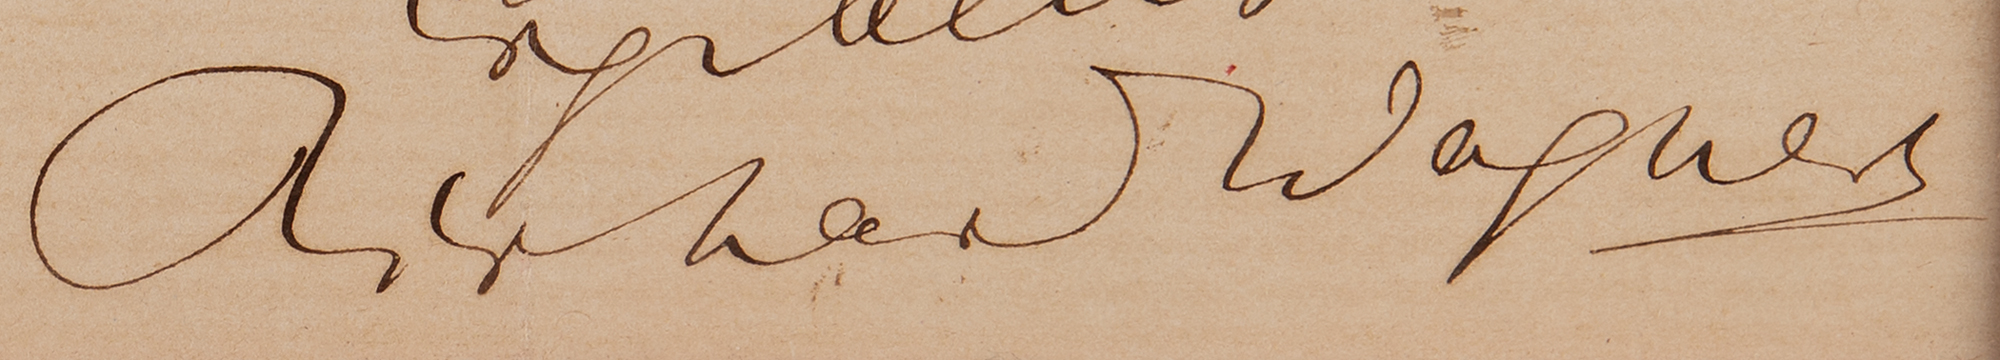 Richard Wagner